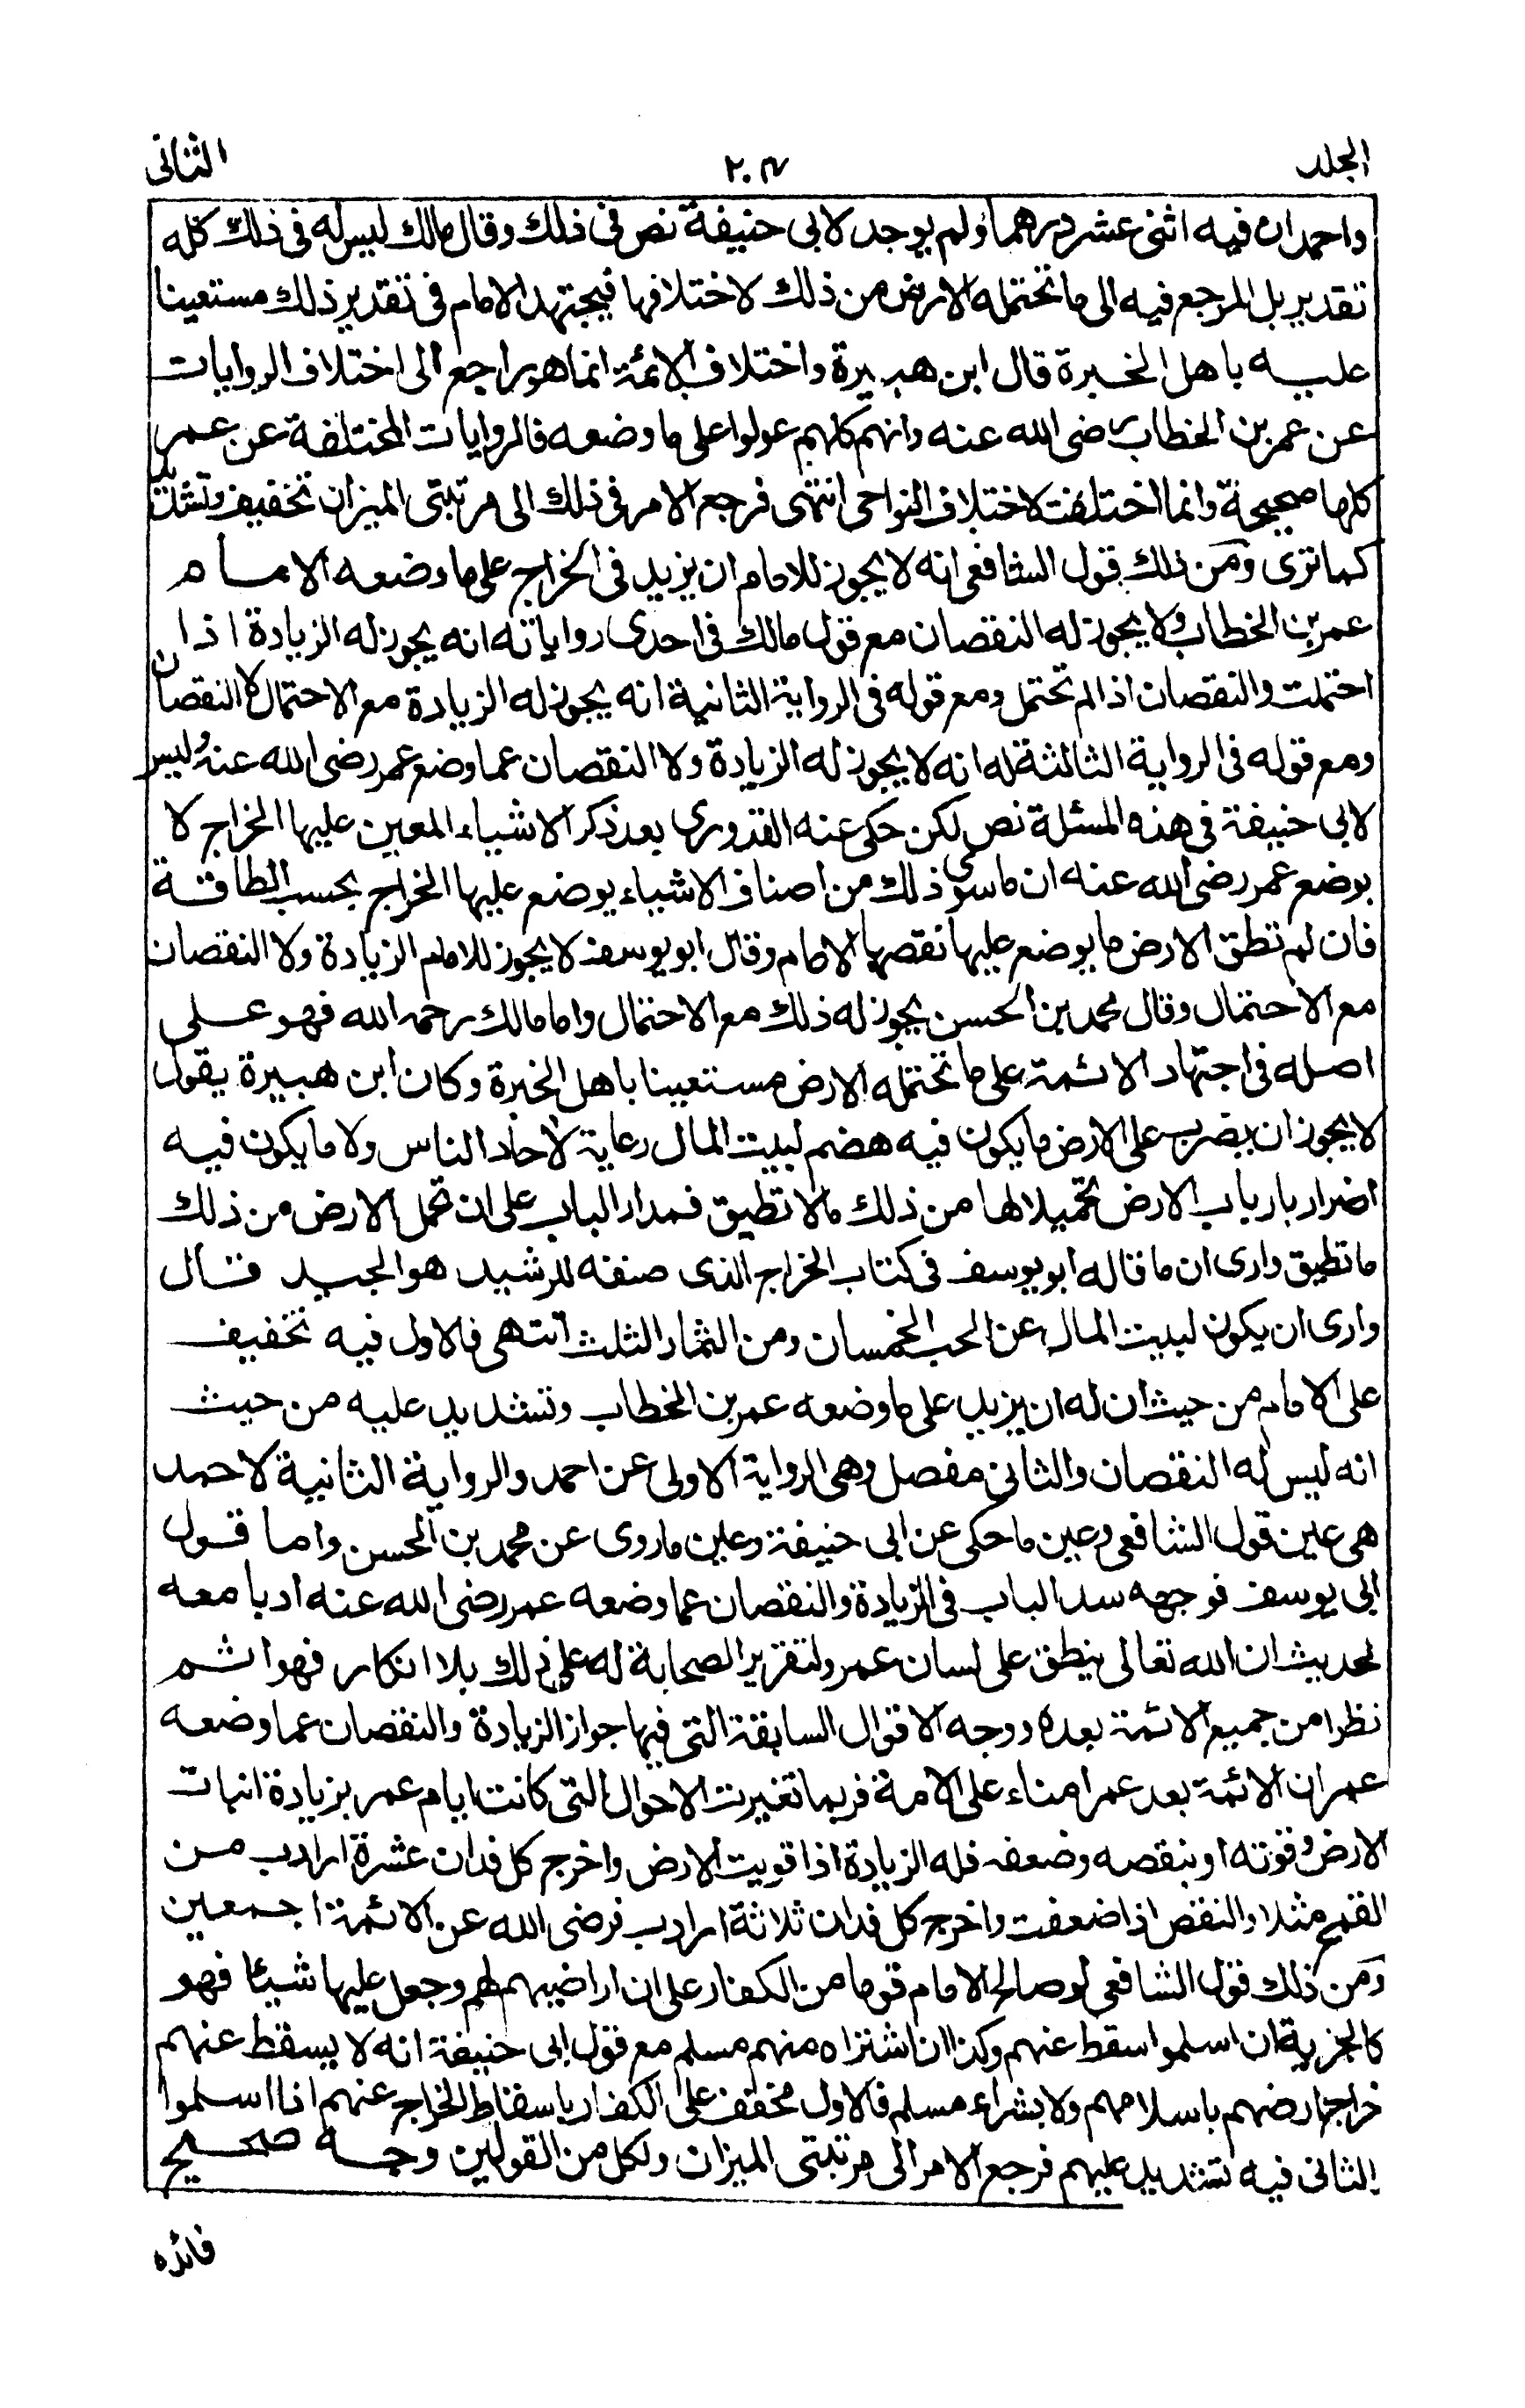 المجلد ٢٠٧ الثانى
واحمد ان فيه اثنى عشر درهما ولم يوجد لابى حنيفة نص فى ذلك وقال مالك ليس له فى ذلك كله
تقدير بل المرجع فيه الى ما تحتمله الارض من ذلك لاختلافها فيجتهد الامام فى تقدير ذلك مستعينا
عليه باهل الخبرة قال ابن هبيرة واختلاف الائمة انما هو راجع الى اختلاف الروايات
عن عمر بن الخطاب رضى الله عنه وانهم كلهم عولوا على ما وضعه فالروايات المختلفة عن عمر
كلها صحيحة وانما اختلفت لاختلاف النواحى انتهى فرجع الامر فى ذلك الى مرتبتى الميزان تخفيف وتشديد
كما ترى ومن ذلك قول الشافعى انه لا يجوز للامام ان يزيد فى الخراج على ما وضعه الامام
عمر بن الخطاب ولا يجوز له النقصان مع قول مالك فى احدى رواياته انه يجوز له الزيادة اذا
احتملت والنقصان اذا لم تحتمل ومع قوله فى الرواية الثانية انه يجوز له الزيادة مع الاحتمال لا النقصان
ومع قوله فى الرواية الثالثة له انه لا يجوز له الزيادة ولا النقصان عما وضع عمر رضى الله عنه وليس
لابى حنيفة فى هذه المسئلة نص لكن حكى عنه القدورى بعد ذكر الاشياء المعين عليها الخراج لا
بوضع عمر رضى الله عنه ان ما سوى ذلك من اصناف الاشياء يوضع عليها الخراج بحسب الطاقة
فان لم تطق الارض ما يوضع عليها نقصها الامام وقال ابو يوسف لا يجوز للامام الزيادة ولا النقصان
مع الاحتمال وقال محمد بن الحسن يجوز له ذلك مع الاحتمال واما مالك رحمه الله فهو على
اصله فى اجتهاد الائمة على ما تحتمله الارض مستعينا باهل الخبرة وكان ابن هبيرة يقول
لا يجوز ان يضرب على الارض ما يكون فيه هضم لبيت المال رعاية لآحاد الناس ولا ما يكون فيه
اضرار بارباب الارض تحميلا لها من ذلك ما لا تطيق فمدار الباب على ان تحمل الارض من ذلك
ما تطيق وارى ان ما قاله ابو يوسف فى كتاب الخراج الذى صنفه للرشيد هو الجيد قال
وارى ان يكون لبيت المال عن الحب الخمسان ومن الثمار الثلث انتهى فالاول فيه تخفيف
على الامام من حيث ان له ان يزيد على ما وضعه عمر بن الخطاب وتشديد عليه من حيث
انه ليس له النقصان والثانى مفصل وهى الرواية الاولى عن احمد والرواية الثانية لاحمد
هى عين قول الشافعى وعين ما حكى عن ابى حنيفة وعين ما روى عن محمد بن الحسن واما قول
ابى يوسف فوجهه سد الباب فى الزيادة والنقصان عما وضعه عمر رضى الله عنه ادبا معه
لحديث ان الله تعالى ينطق على لسان عمر ولتقرير الصحابة له على ذلك بلا انكار فهو اتم
نظرا من جميع الائمة بعده ووجه الاقوال السابقة التى فيها جواز الزيادة والنقصان عما وضعه
عمر ان الائمة بعد عمر امناء على الامة فربما تغيرت الاحوال التى كانت ايام عمر بزيادة انبات
الارض وقوته او بنقصه وضعفه فله الزيادة اذا قويت الارض واخرج كل فدان عشرة ارادب من
القمح مثلا والنقص اذا ضعفت واخرج كل فدان ثلاثة ارادب فرضى الله عن الائمة اجمعين
ومن ذلك قول الشافعى لو صالح الامام قوما من الكفار على ان اراضيهم لهم وجعل عليها شيئا فهو
كالجزية ان اسلموا سقط عنهم وكذا ان اشتراه منهم مسلم مع قول ابى حنيفة انه لا يسقط عنهم
خراج ارضهم باسلامهم ولا بشراء مسلم فالاول مخفف على الكفار باسقاط الخراج عنهم اذا اسلموا
الثانى فيه تشديد عليهم فرجع الامر الى مرتبتى الميزان ولكل من القولين وجه صحيح
فائده